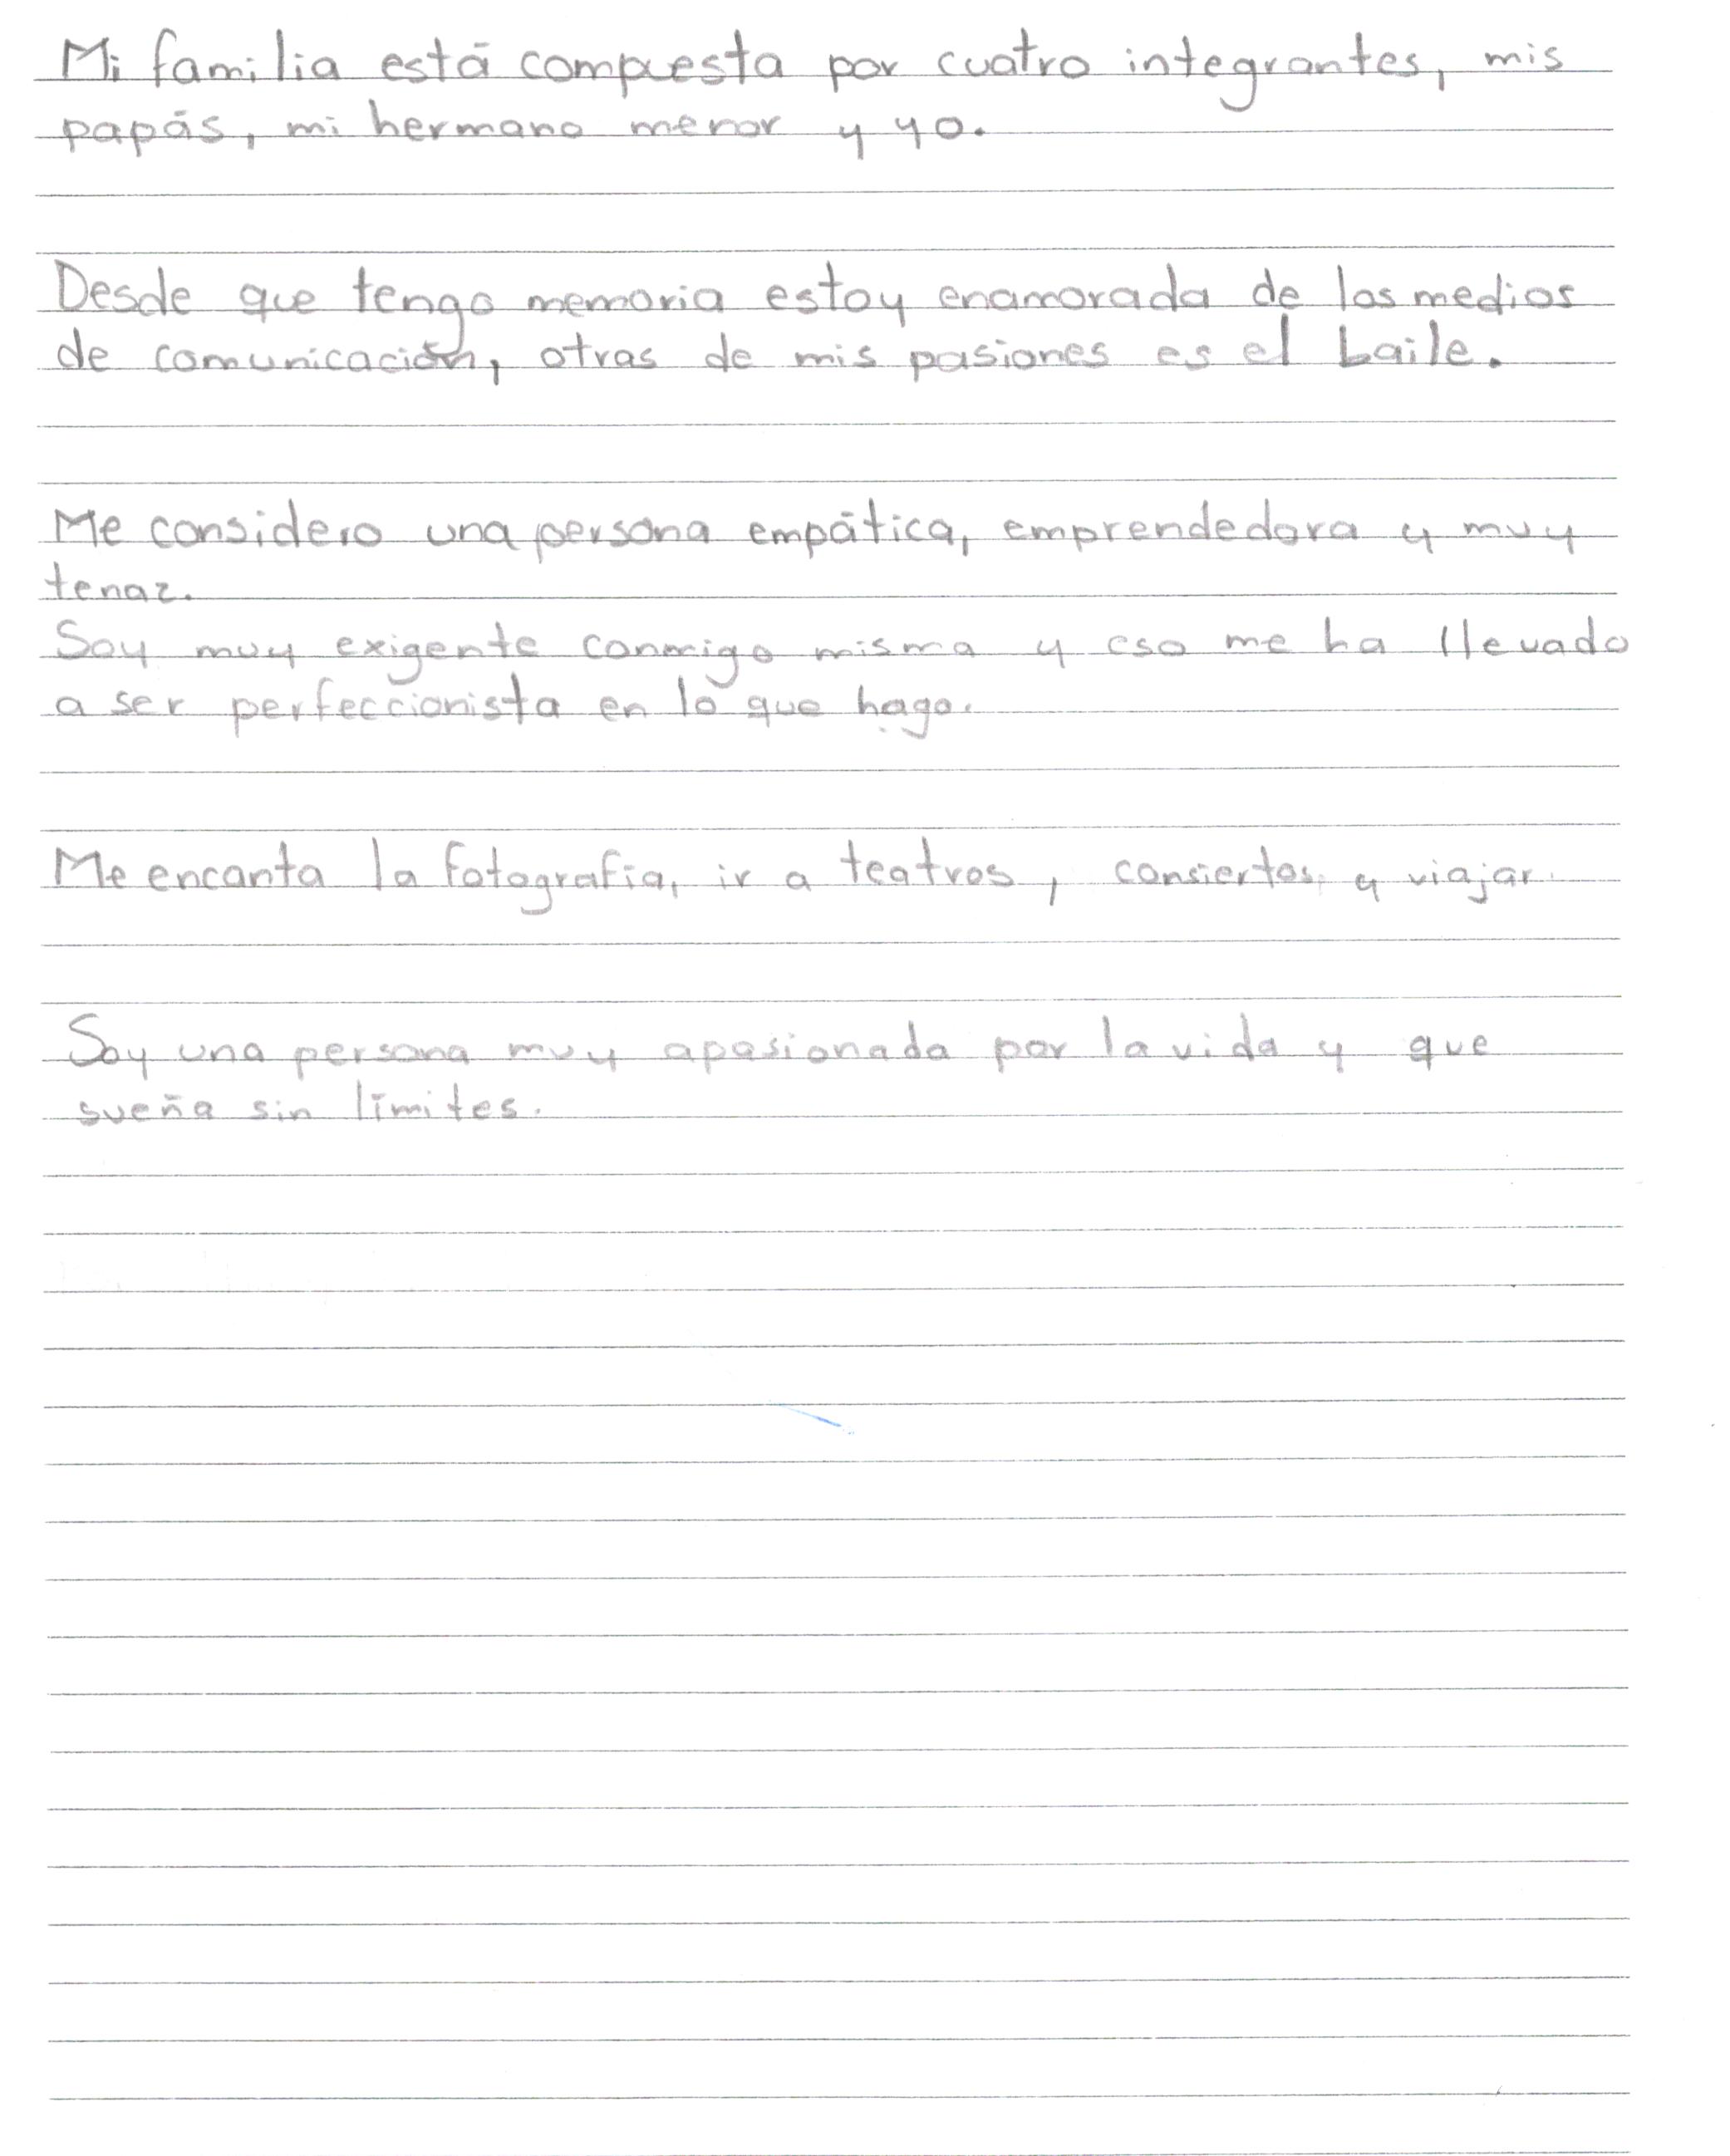 Mi familia está compuesta por cuatro integrantes, mis
papás, mi hermano menor y yo.
Desde que tengo memoria estoy enamorada de los medios
de comunicación, otras de mis pasiones es el baile.
Me considero una persona empática, emprendedora y muy
tenaz.
Soy muy exigente conmigo misma y eso me ha llevado
a ser perfeccionista en lo que hago.
Me encanta la fotografía, ir a teatros, consiertos, y viajar.
Soy una persona muy apasionada por la vida y que
sueña sin límites.